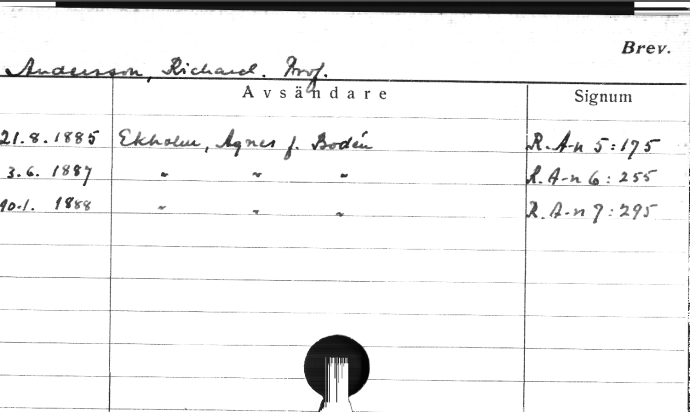 Brev.
Andersson, Richard. Prof.
Avsändare Signum
21.8.1885 Ekholm, Agnes f. Bodén R.A-n 5:175
3.6. 1887 " " " R.A-n 6:255
10.1. 1888 " " " R.A-n 7:295